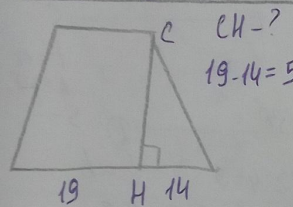 C
CH-?
19-14=5
19 H 14